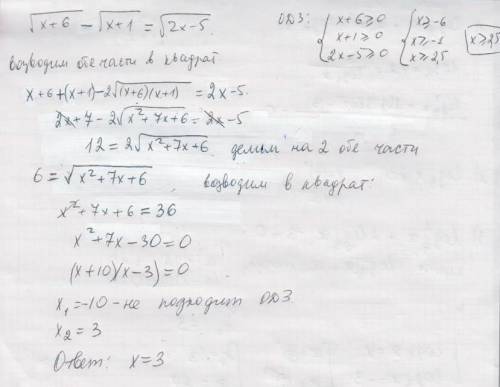 √(x+6) − √(x+1) = √(2x−5)
ОДЗ: { x+6≥0 { x≥-6
x+1≥0 x≥-1 x≥2,5
2x-5≥0 x≥2,5
возводим обе части в квадрат
x+6+(x+1)−2√((x+6)(x+1)) = 2x-5
2x+7−2√(x²+7x+6) = 2x-5
12=2√(x²+7x+6) делим на 2 обе части
6=√(x²+7x+6) возводим в квадрат:
x²+7x+6=36
x²+7x-30=0
(x+10)(x-3)=0
x₁=-10 - не подходит ОДЗ.
x₂=3
Ответ: x=3